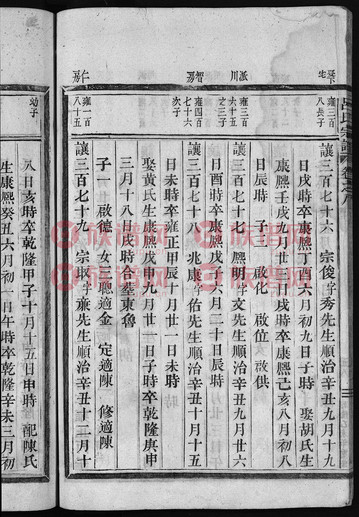 呂氏宗譜 卷之八
雍三百
八長子
讓三百七十六 宗俊字秀先生順治辛丑九月十九
日戌時卒康熙丁酉六月初九日子時 娶胡氏生
康熙壬戌九月廿日戌時卒康熙己亥八月初八
日辰時 子三 啟化 啟位 啟供
派川
雍三百
六十五
之三子
讓三百七十七 熙明字文先生順治辛丑九月廿六
日酉時卒康熙戊子六月二十日辰時
智房
雍四百
七十四
次子
讓三百七十八 兆康字佑先生順治辛丑十月十五
日未時卒雍正甲辰十月廿一日未時
娶黃氏生康熙戊申九月廿一日子時卒乾隆庚申
三月十八日戌時合墓東魯
子一 啟德 女三 聽適金 定適陳 修適陳
仁房
雍一百
八十五
讓三百七十九 宗賑字亷先生順治辛丑十二月十
幼子
八日亥時卒乾隆甲子十月十五日申時 配陳氏
生康熙癸丑六月初一日午時卒乾隆辛未三月初
族谱网